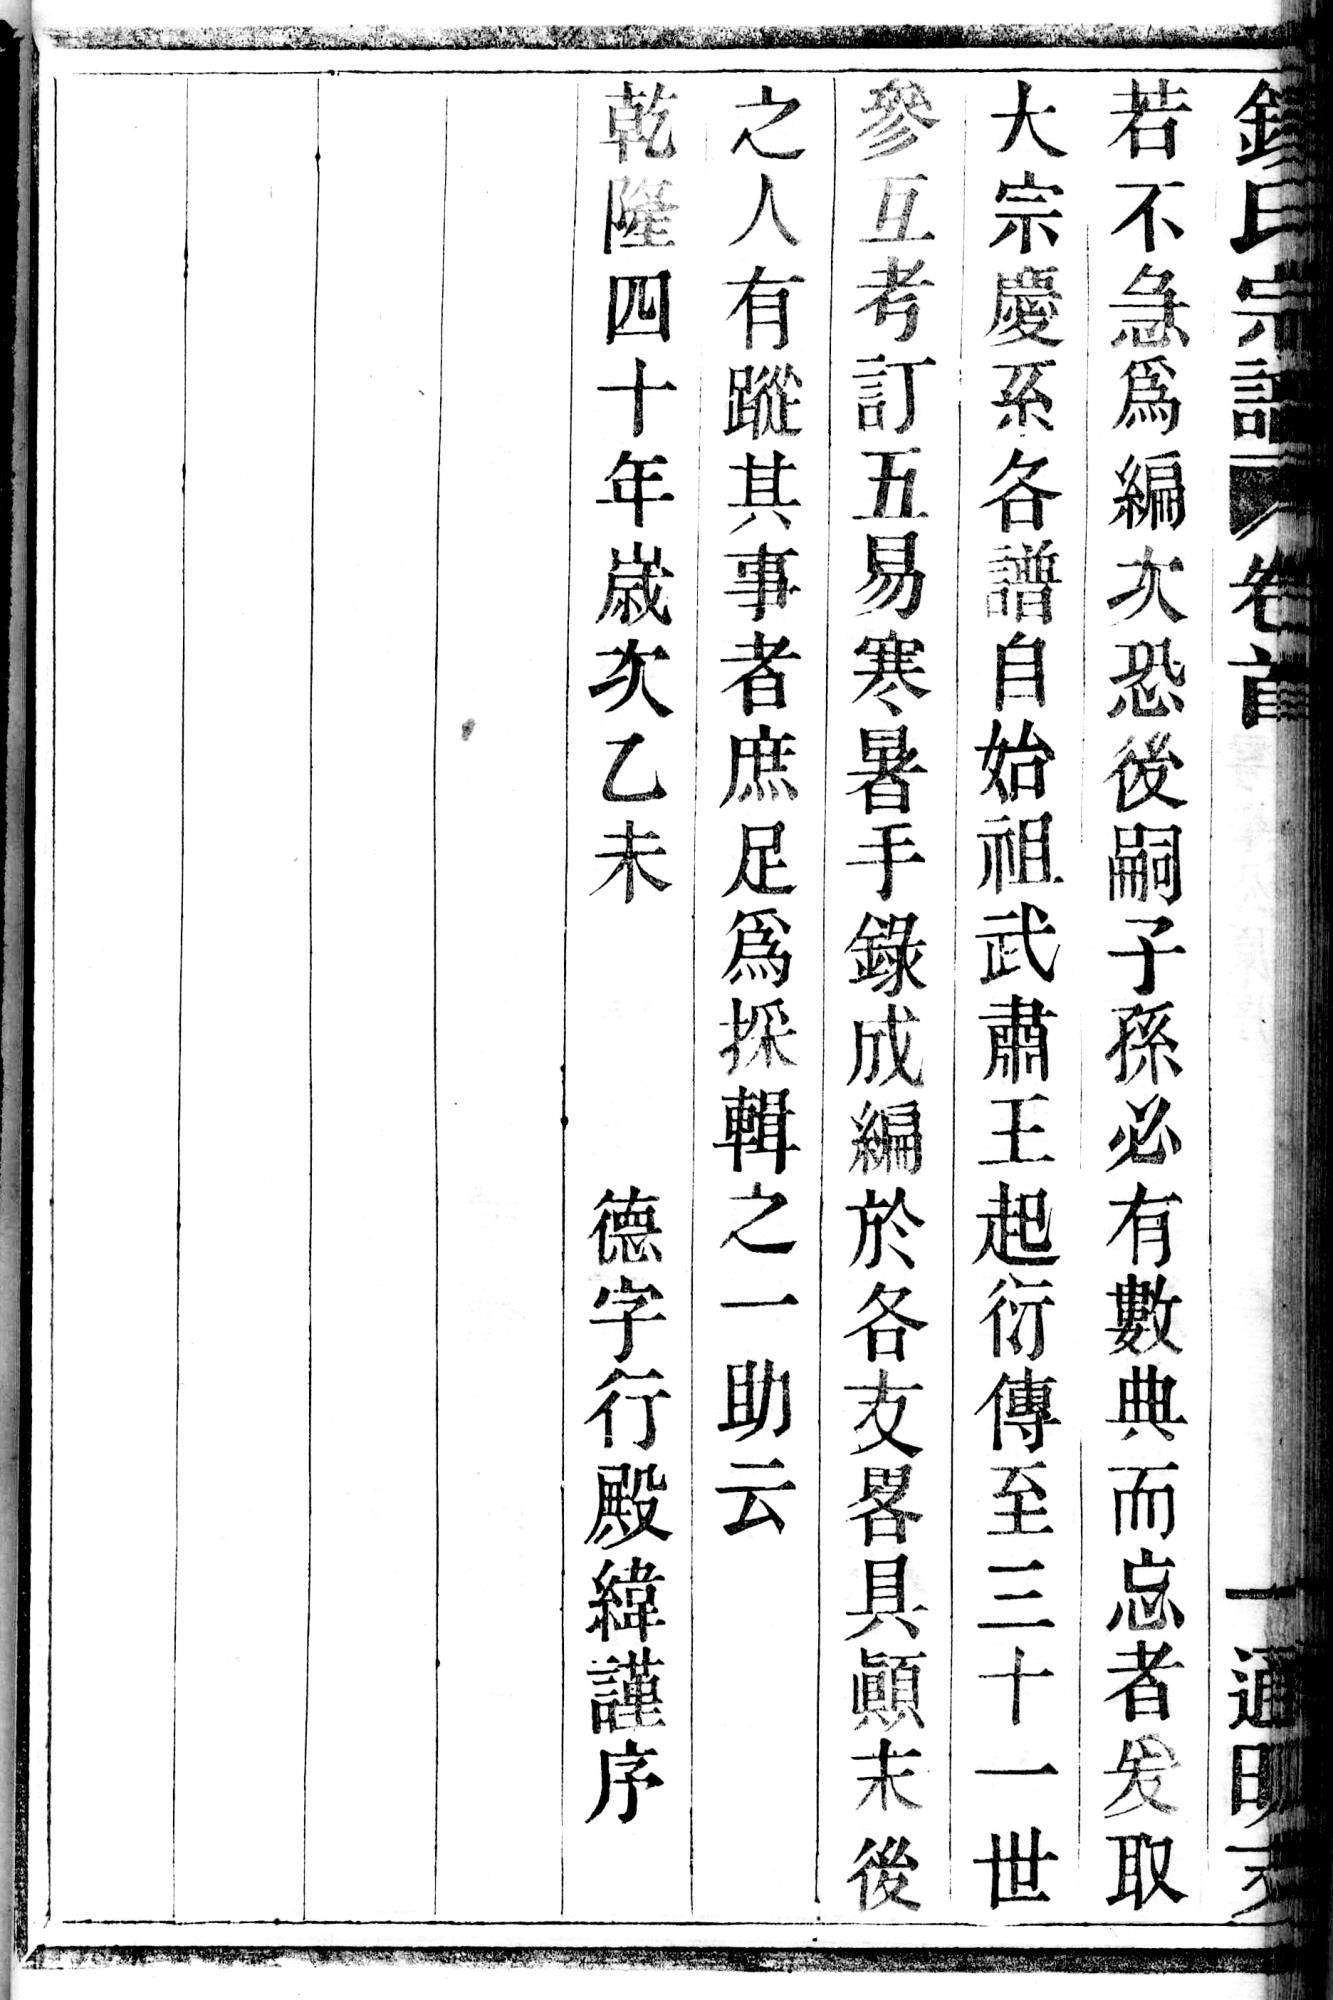 錢氏宗譜 卷首 一 通明
若不急爲編次恐後嗣子孫必有數典而忘者爰取
大宗慶系各譜自始祖武肅王起衍傳至三十一世
參互考訂五易寒暑手錄成編於各支畧具顚末後
之人有蹤其事者庶足爲採輯之一助云
乾隆四十年歲次乙未 德字行殿緯謹序